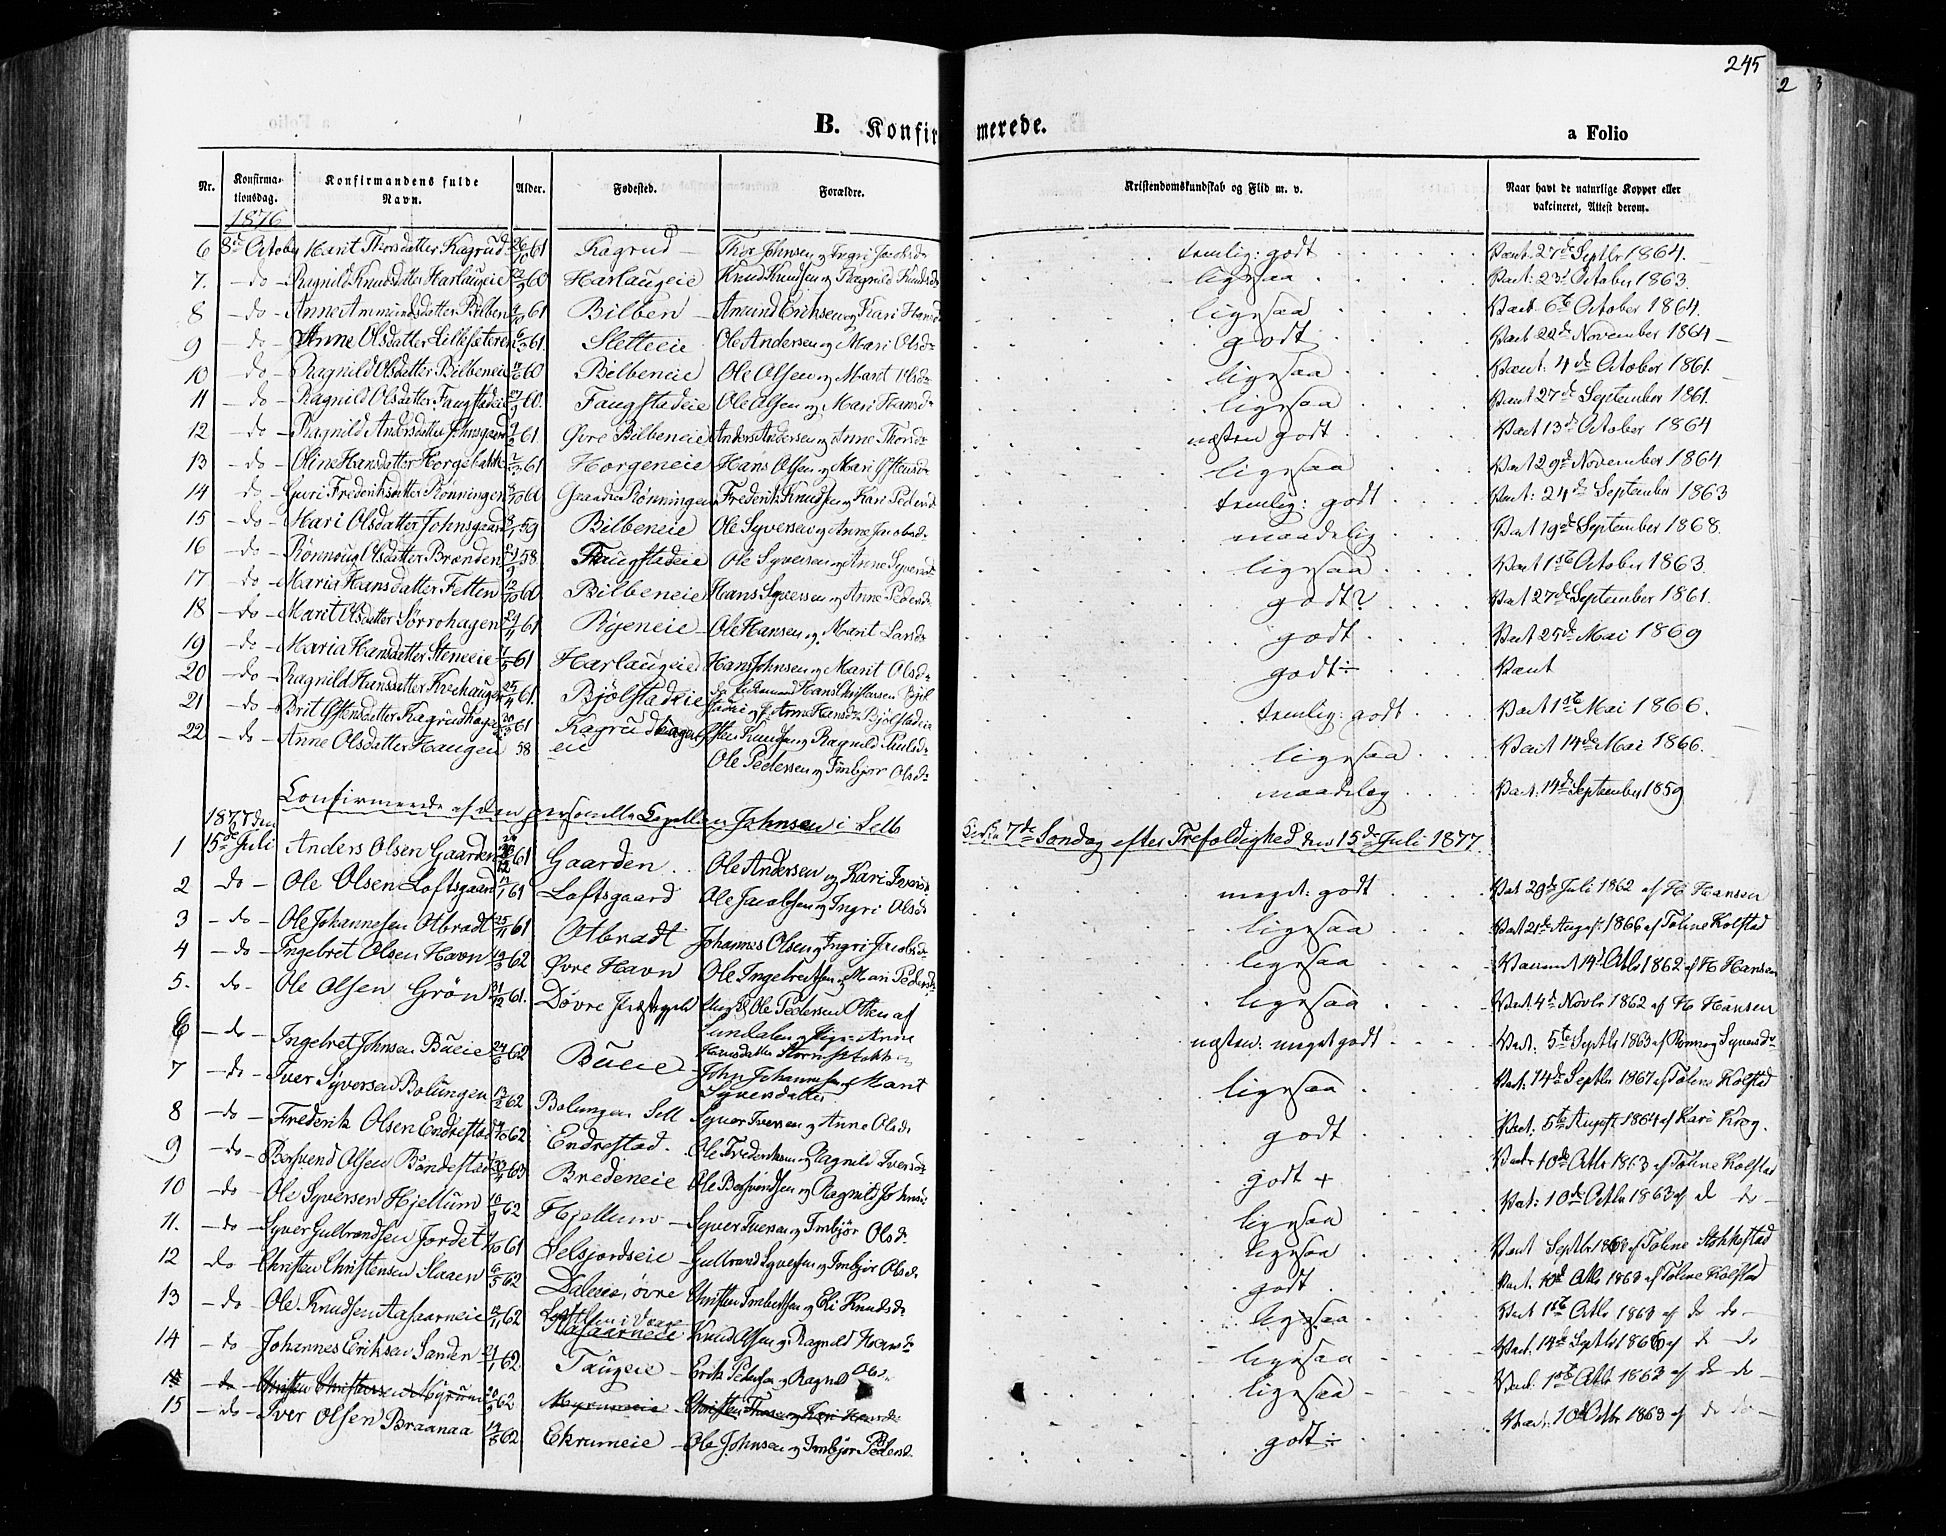 245
2
B. Konfirmerede.
a Folio
Nr. Konfirmationsdag. Konfirmandens fulde Navn. Alder. Fødested. Forældre. Kristendomskundskab og Flid m. v. Naar havt de naturlige Kopper eller vakcineret, Attest derom.
1876
6 8de October Marit Thorsdatter Kagrud 61 Kagrud Thor Johnsen og Ingri Jacobsd. temlig: godt Vact. 27de Septbr 1864.
7. do Ragnild Knudsdatter Harlaugeie 60 Harlaugeie Knud Knudsen og Ragnild Knudsd. ligesaa Vact. 23d October 1863.
8 do Anne Ammundsdatter Bilben 61 Bilben Amund Eriksen og Kari Hansd ligesaa Vact. 6te October 1864.
9 do Anne Olsdatter Lillesæteren 61. Sletteeie Ole Andersen og Mari Olsd. godt Vact 22de November 1864
10 do Ragnild Olsdatter Bilbeneie 60 Bilbeneie Ole Olsen og Marit Olsd. ligesaa Vact. 4de October 1861.
11 do Ragnild Olsdatter Faugstadeie 60. Faugstadeie Ole Olsen og Mari Hansd. ligesaa Vact 27de September 1861.
12 do Ragnild Andersdatter Johnsgaard 61. Øvre Bilbeneie Anders Andersen og Anne Thorsd. næsten godt Vact 13de October 1864
13 do Oline Hansdatter Horgebakke 61 Horgeneie Hans Olsen og Mari Østensd. ligesaa Vact 29de November 1864
14 do Guri Frederiksdatter Rønningen Rønningen Frederik Knudsen og Kari Pedersd temlig: godt Vact: 24de September 1863
15 do Mari Olsdatter Johnsgaard 59 Bilbeneie Ole Syversen og Anne Jacobsd. maadelig Vact 19de September 1868.
16 do Rønnoug Olsdatter Brænden 58 Faugstadeie Ole Syversen og Anne Syversd. ligesaa Vact 1ste October 1863.
17 do Maria Hansdatter Fetten 60 Bilbeneie Hans Syversen og Anne Pedersd. godt? Vact 27de September 1861.
18 do Marit Olsdatter Sørrohagen 61. Ryeneie Ole Hansen og Marit Larsd. godt Vact 25de Mai 1869
19 do Maria Hansdatter Steneeie 61 Harlaugeie Hans Johnsen og Marit Olsd. godt ÷ Vact
20 do Ragnild Hansdatter Kvehaugen 25/4 61. Bjølstadeie Hans Christensen Bjølstadeie og Anne Hansd. Bjølstadeie temlig: godt Vact 1ste Mai 1866.
21 do Brit Østensdatter Kagrudhagen 61 Kagrudhageneie Østen Knudsen og Ragnild Poulsd. ligesaa Vact 14de Mai 1866.
22 do Anne Olsdatter Haugen 58 Ole Pedersen og Imbjør Olsd. maadelig Vact. 14de September 1859
Confirmerede af den personelle Capellan Johnsen i Sells Kirke 7de Søndag efter Trefoldighed den 15de Juli 1877.
1877 den
1 15de Juli Anders Olsen Gaarden 61 Gaarden Ole Andersen og Kari Iversd. meget: godt Vact 29de Juli 1862 af H Hansen
2 do Ole Olsen Loftsgaard 61 Loftsgaard Ole Jacobsen og Ingri Olsd. ligesaa Vact 21de August 1866 af Toline Kolstad
3 do Ole Johannesen Otbradt 25/11 61 Otbradt Johannes Olsen og Ingri Jacobsd. ligesaa 14de Octbr 1862 af H Hansen
4 do Ingebret Olsen Havn 19/3 62 Øvre Havn Ole Ingebretsen og Mari Pedersd. ligesaa Vact. 4de Novbr 1862 af H Hansen
5. do Ole Olsen Grøn 31/12 61. Dovre Præstegjeld Ungk. Ole Pedersen Otten af Sundalen og Pige Anne Hansdatter næsten: meget godt Vact. 5te Septbr 1863 af Rønnog Syversd.
6 do Ingebret Johnsen Bueie 24/6 62 Bueie John Johannesen og Marit Syversdatter ligesaa Vact. 14de Septbr 1867 af Toline Kolstad
7 do Iver Syversen Bolungen 13/2 62 Bolungen Sell Syver Iversen og Anne Olsd. godt Vact. 5te August 1864 af Kari Krog.
8 do Frederik Olsen Endrestad 62 Endrestad Ole Frederiksen og Ragnild Iversd. godt + Vact 10de Octbr 1863 af Toline Kolstad
9 do Bersvend Olsen Bøndestad 63 Bredeneie Ole Bersvendsen og Ragnild Johnsd. ligesaa Vact: 10de Octbr 1863 af d do
10 do Ole Syversen Hjellum 62 Hjellum Syver Iversen og Imbjør Olsd. ligesaa Vact Septbr af Toline Kolstad
11. do Syver Gulbrandsen Jordet 61 Selsjordseie Gulbrand Syversen og Imbjør Olsd. godt Vact. 10de Octbr 1863 af Toline Kolstad
12 do Christen Christensen Slaaen 62 Daleeie, øvre Christen Imbertsen og Eli Knudsd. ligesaa Vact 1ste Octbr 1863 af do do
13 do Ole Knudsen Aasaarneie 62 Aasaarneie Knud Olsen og Ragnild Hansd. ligesaa Vact. 14de Septbr 1866 af do do
14 do Johannes Eriksen Sanden 62 Taugeie Erik Pedersen og Ragnild Olsd. ligesaa Vact. 1ste Octbr 1863 af do do
15 do Christen Christensen 62 Christen og Kari Hansd.
15 do Iver Olsen Braanaa 62 Ekrumeie Ole Johnsen og Imbjør Pedersd. godt ÷ Vact. 10de Octbr 1863 af do do